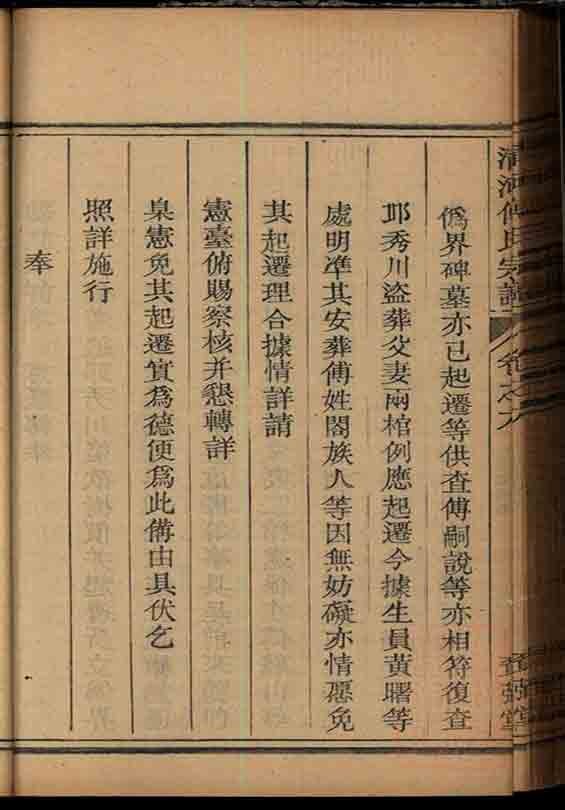 僞界碑墓亦已起遷等供查傅嗣說等亦相符復查
邢秀川盜葬父妻兩棺例應起遷今據生員黃曙等
處明準其安葬傅姓閤族人等因無妨礙亦情愿免
其起遷理合據情詳請
憲臺俯賜察核并懇轉詳
臬憲免其起遷實爲德便爲此備由具伏乞
照詳施行
奉
清河傅氏宗譜
卷之六